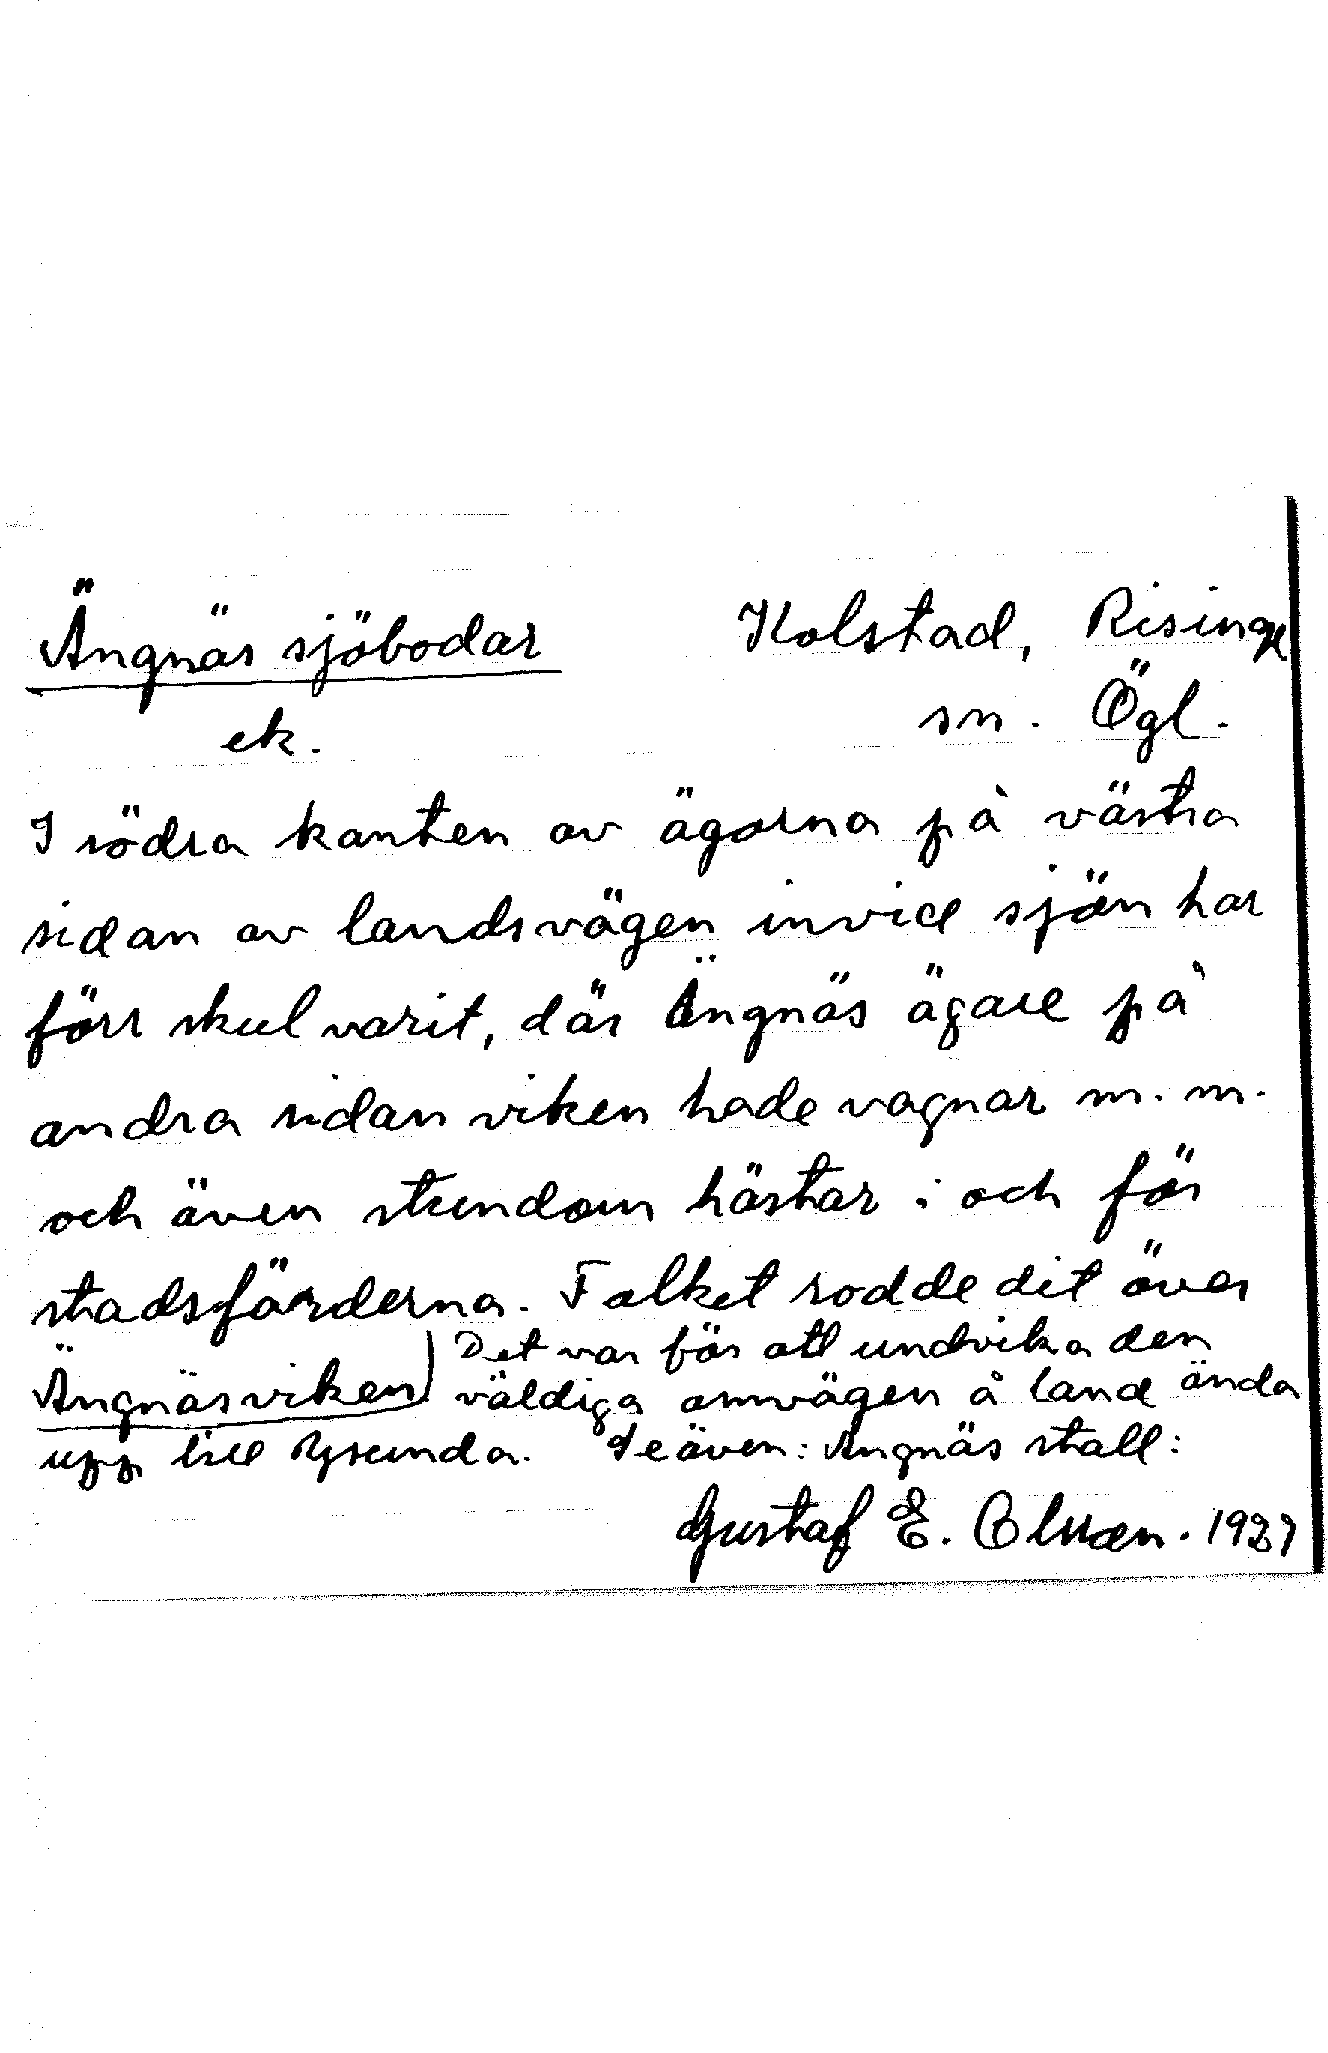 Ängnäs sjöbodar
Kolstad, Risinge
ek.
sn. Ögl.
I södra kanten av ägorna på västra
sidan av landsvägen invid sjön har
förr skul varit, där Ängnäs ägare på
andra sidan viken hade vagnar m.m.
och även stundom hästar i och för
stadsfärderna. Folket rodde dit över
Ängnäsviken) Det var för att undvika den
väldiga omvägen å land ända
upp till Ysunda. Se även: Ängnäs stall:
Gustaf E. Olsson. 1937